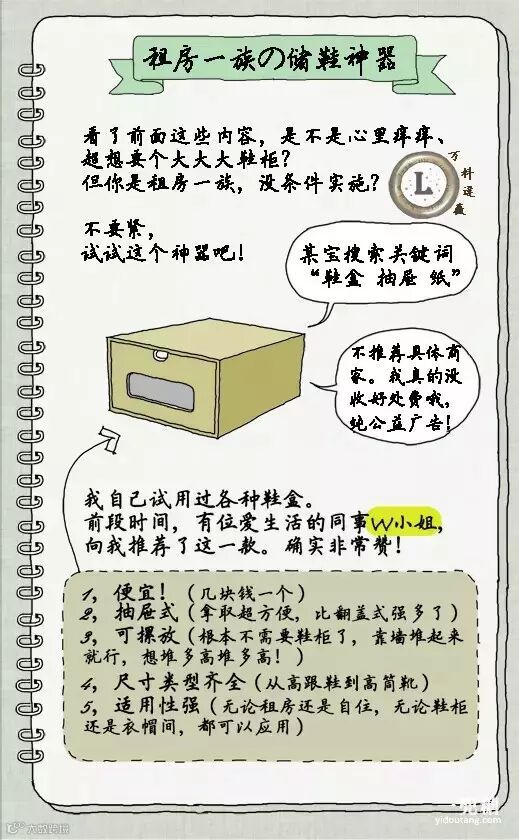 租房一族の储鞋神器
看了前面这些内容，是不是心里痒痒、
超想要个大大大鞋柜？
但你是租房一族，没条件实施？
万科逯薇
L
不要紧，
试试这个神器吧！
某宝搜索关键词
“鞋盒 抽屉 纸”
不推荐具体商
家。我真的没
收好处费哦，
纯公益广告！
我自己试用过各种鞋盒。
前段时间，有位爱生活的同事W小姐，
向我推荐了这一款。确实非常赞！
1，便宜！（几块钱一个）
2，抽屉式（拿取超方便，比翻盖式强多了）
3，可摞放（根本不需要鞋柜了，靠墙堆起来
就行，想堆多高堆多高！）
4，尺寸类型齐全（从高跟鞋到高筒靴）
5，适用性强（无论租房还是自住，无论鞋柜
还是衣帽间，都可以应用）
大数跨境
一兜糖
yidoutang.com